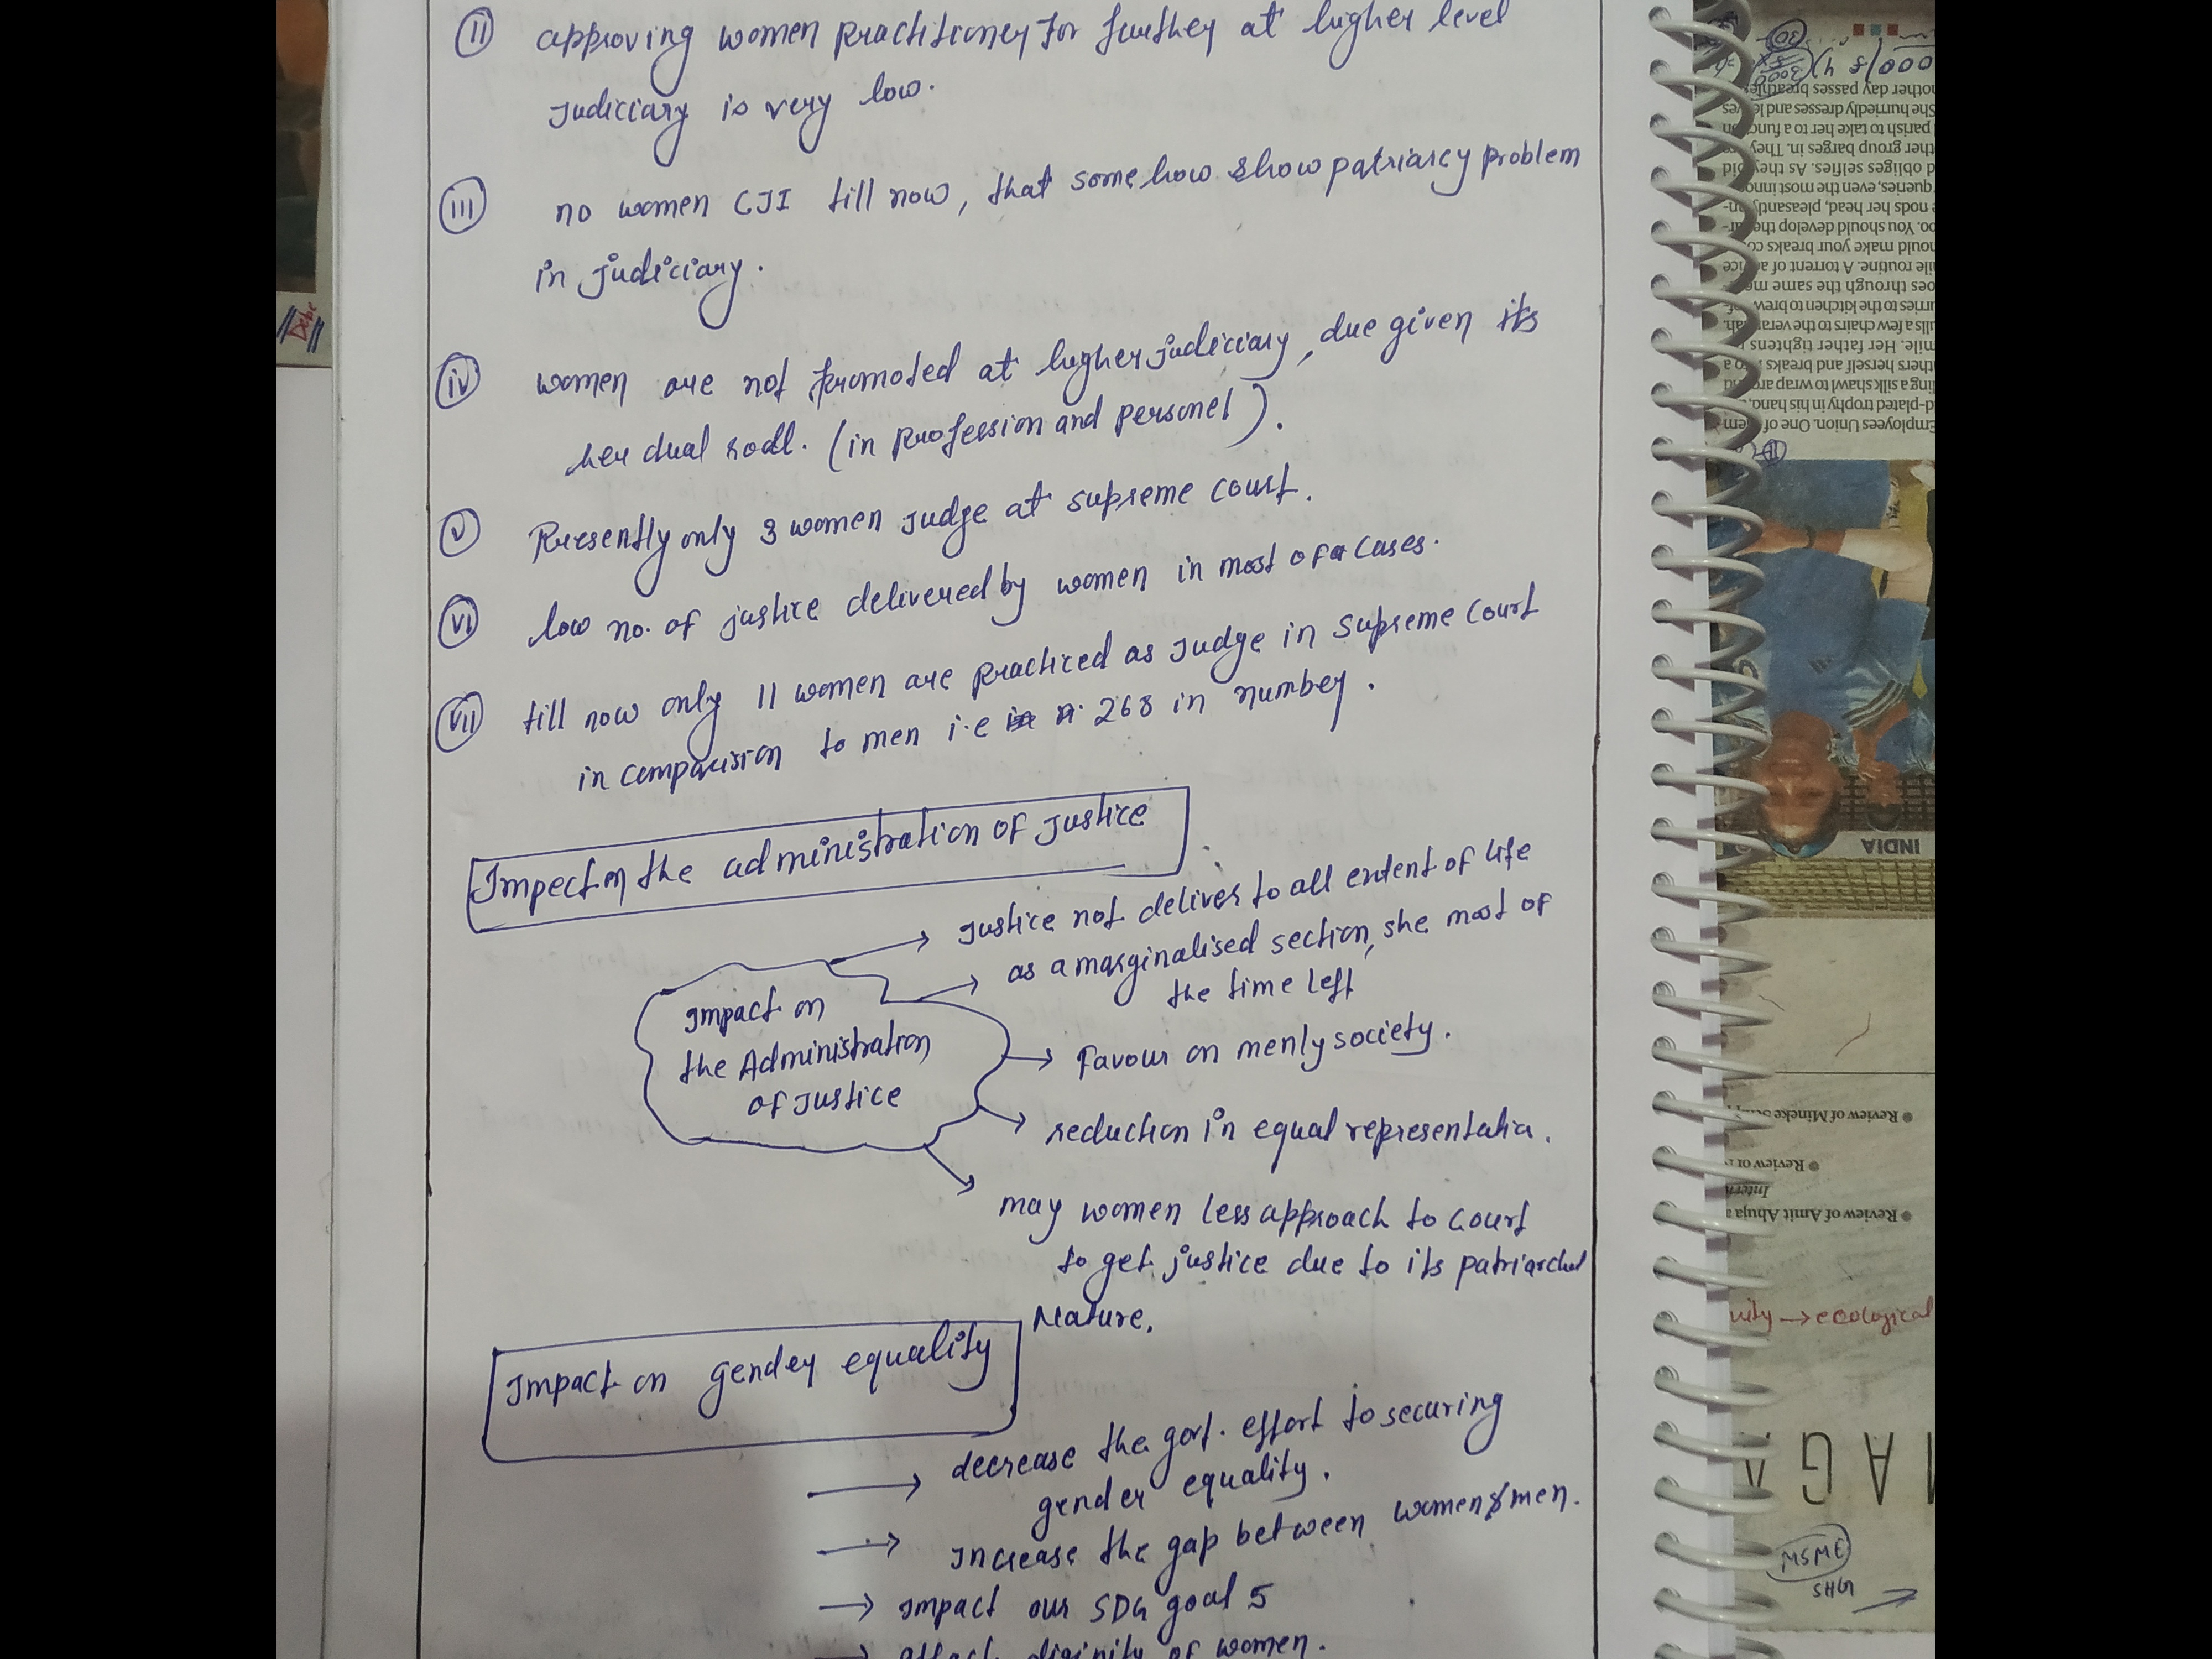 (ii) approving women practitioner for further at higher level
Judiciary is very low.
(iii) no women CJI till now, that somehow show patriarcy problem
in judiciary.
(iv) women are not promoted at higher judiciary, due given its
her dual rodl. (in profession and personel).
(v) Presently only 3 women judge at supreme court.
(vi) low no. of justice delivered by women in most of cases.
(vii) till now only 11 women are practiced as Judge in Supreme Court
in comparision to men i.e 268 in number.
Impect on the administration of justice
Impact on
the Administration
of Justice
Justice not deliver to all extent of life
as a marginalised section, she most of
the time left
Favour on menly society.
reduction in equal representatia.
may women less approach to court
to get justice due to its patriarchal
Nature.
Impact on gender equality
decrease the govt. effort to securing
gender equality.
Increase the gap between women & men.
Impact our SDG goal 5
affect diginity of women.
Debt
other day passes
She hurriedly dresses and
parish to take her to a function
ther group barges in. They
obliges selfies. As they
queries, even the most
nods her head, pleasantly
oo. You should develop the
hould make your breaks
routine. A torrent of
oes through the same
urries to the kitchen to brew
ulls a few chairs to the
mile. Her father tightens
thers herself and breaks
ing a silk shawl to wrap
d-plated trophy in his hand,
Employees Union. One of
INDIA
Review of Mineke
Review of
Intern
Review of Amit Ahuja
→ ecological
MAGA
MSME
SHG